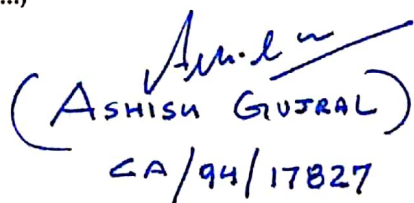 (ASHISH GUJRAL)
CA/94/17827